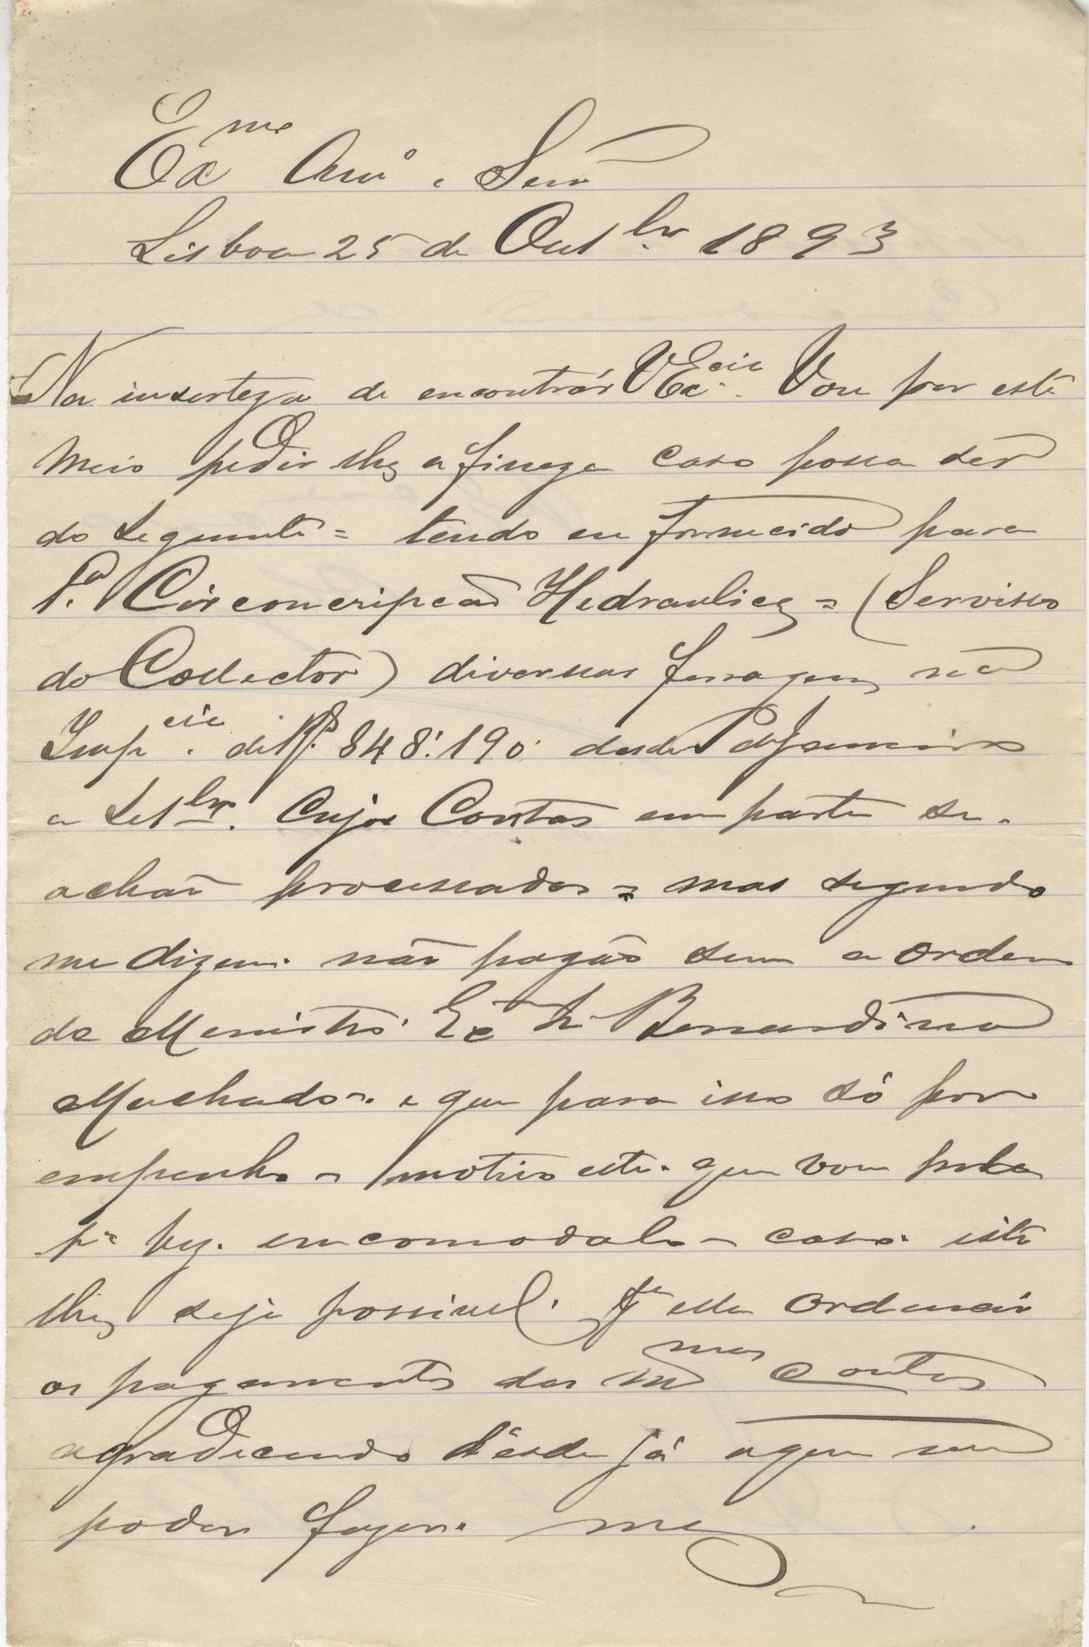 Exmo Amo e Senr
Lisboa 25 de Outbro 1893
Na inserteza de encontrár VExcia. Vou por este
meio pedir lhe a fineza caso possa ser
do seguinte = tendo eu fornecido para
1.a Circoncripcão Hedraulica = (Serviso
do Collector) diversas ferragens na
Impcia. de Rs. 848:190 desde Janeiro
a Setbro. Cujas Contas em parte se.
achão processadas = mas segundo
me dizem. não pagão sem a ordem
do Menistro. Exmo Sr Bernardino
Machado. e que para isso só por
empenho = motivo este. que vou
pa encomodalo = caso. iste
lhe seja possivel. pa elle ordenár
os pagamentos das mmas Contas
agradecendo désde já aquem
poder fazer. me